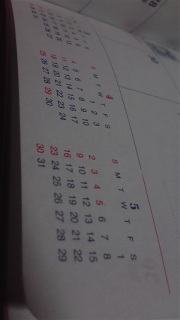 4
S M T W T F S
1 2 3
4 5 6 7 8 9 10
11 12 13 14 15 16 17
18 19 20 21 22 23 24
25 26 27 28 29 30
5
S M T W T F S
1
2 3 4 5 6 7 8
9 10 11 12 13 14 15
16 17 18 19 20 21 22
23 24 25 26 27 28 29
30 31